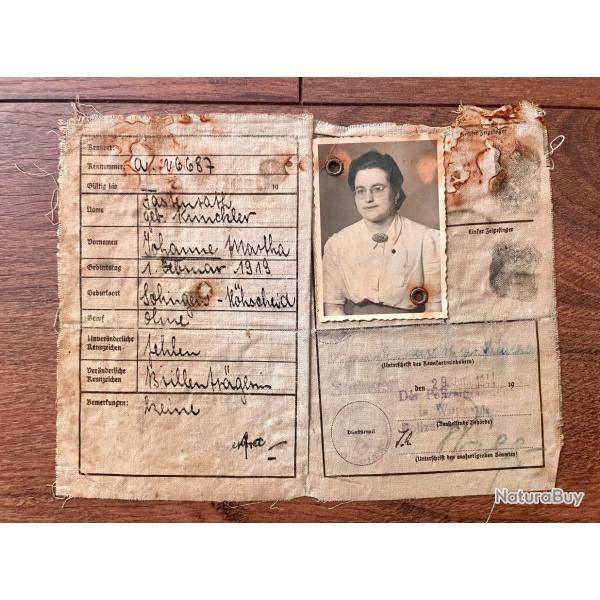 Kennort:
Kennummer: A. 06687
Gültig bis 19
Name Fastenrath
geb. Künckler
Vornamen Johanne Martha
Geburtstag 1. Februar 1919
Geburtsort Solingen-Höhscheid
Beruf ohne
Unveränderliche
Kennzeichen fehlen
Veränderliche
Kennzeichen Brillenträgerin
Bemerkungen: Keine
Rechter Zeigefinger
Linker Zeigefinger
(Unterschrift des Kennkarteninhabers)
den 29. 19
Der Polizei
in Wupp
(Ausstellende Behörde)
Polizei
Dienststempel
(Unterschrift des ausfertigenden Beamten)
NaturaBuy